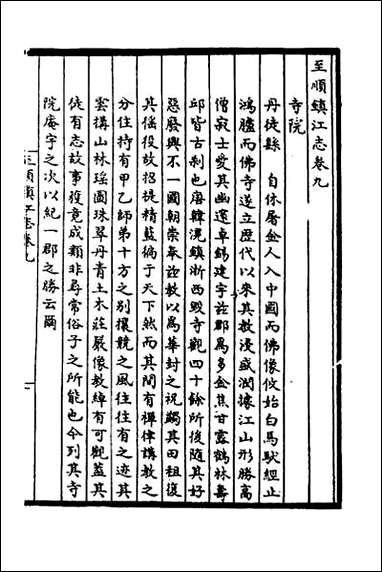 至順鎮江志卷九
寺院
丹徒縣 自休屠金人入中國而佛像攸始白馬馱經止
鴻臚而佛寺遂立歷代以來其教浸盛潤據江山形勝高
僧寂士愛其幽邃卓錫建宇玆郡為多金焦甘露鶴林壽
邱皆古刹也唐韓滉鎮浙西毀寺觀四十餘所後隨其好
惡廢興不一國朝崇奉玆教以為華封之祝蠲其田租復
其徭役故招提精藍徧于天下然而其間有禪律講教之
分住持有甲乙師弟十方之别攘競之風往往有之迹其
雲構山林瑶圖珠翠丹青土木莊嚴像教綽有可觀蓋其
徒有志故事復竟成類非尋常俗子之所能也今列其寺
院庵宇之次以紀一郡之勝云爾
至順鎮江志卷九